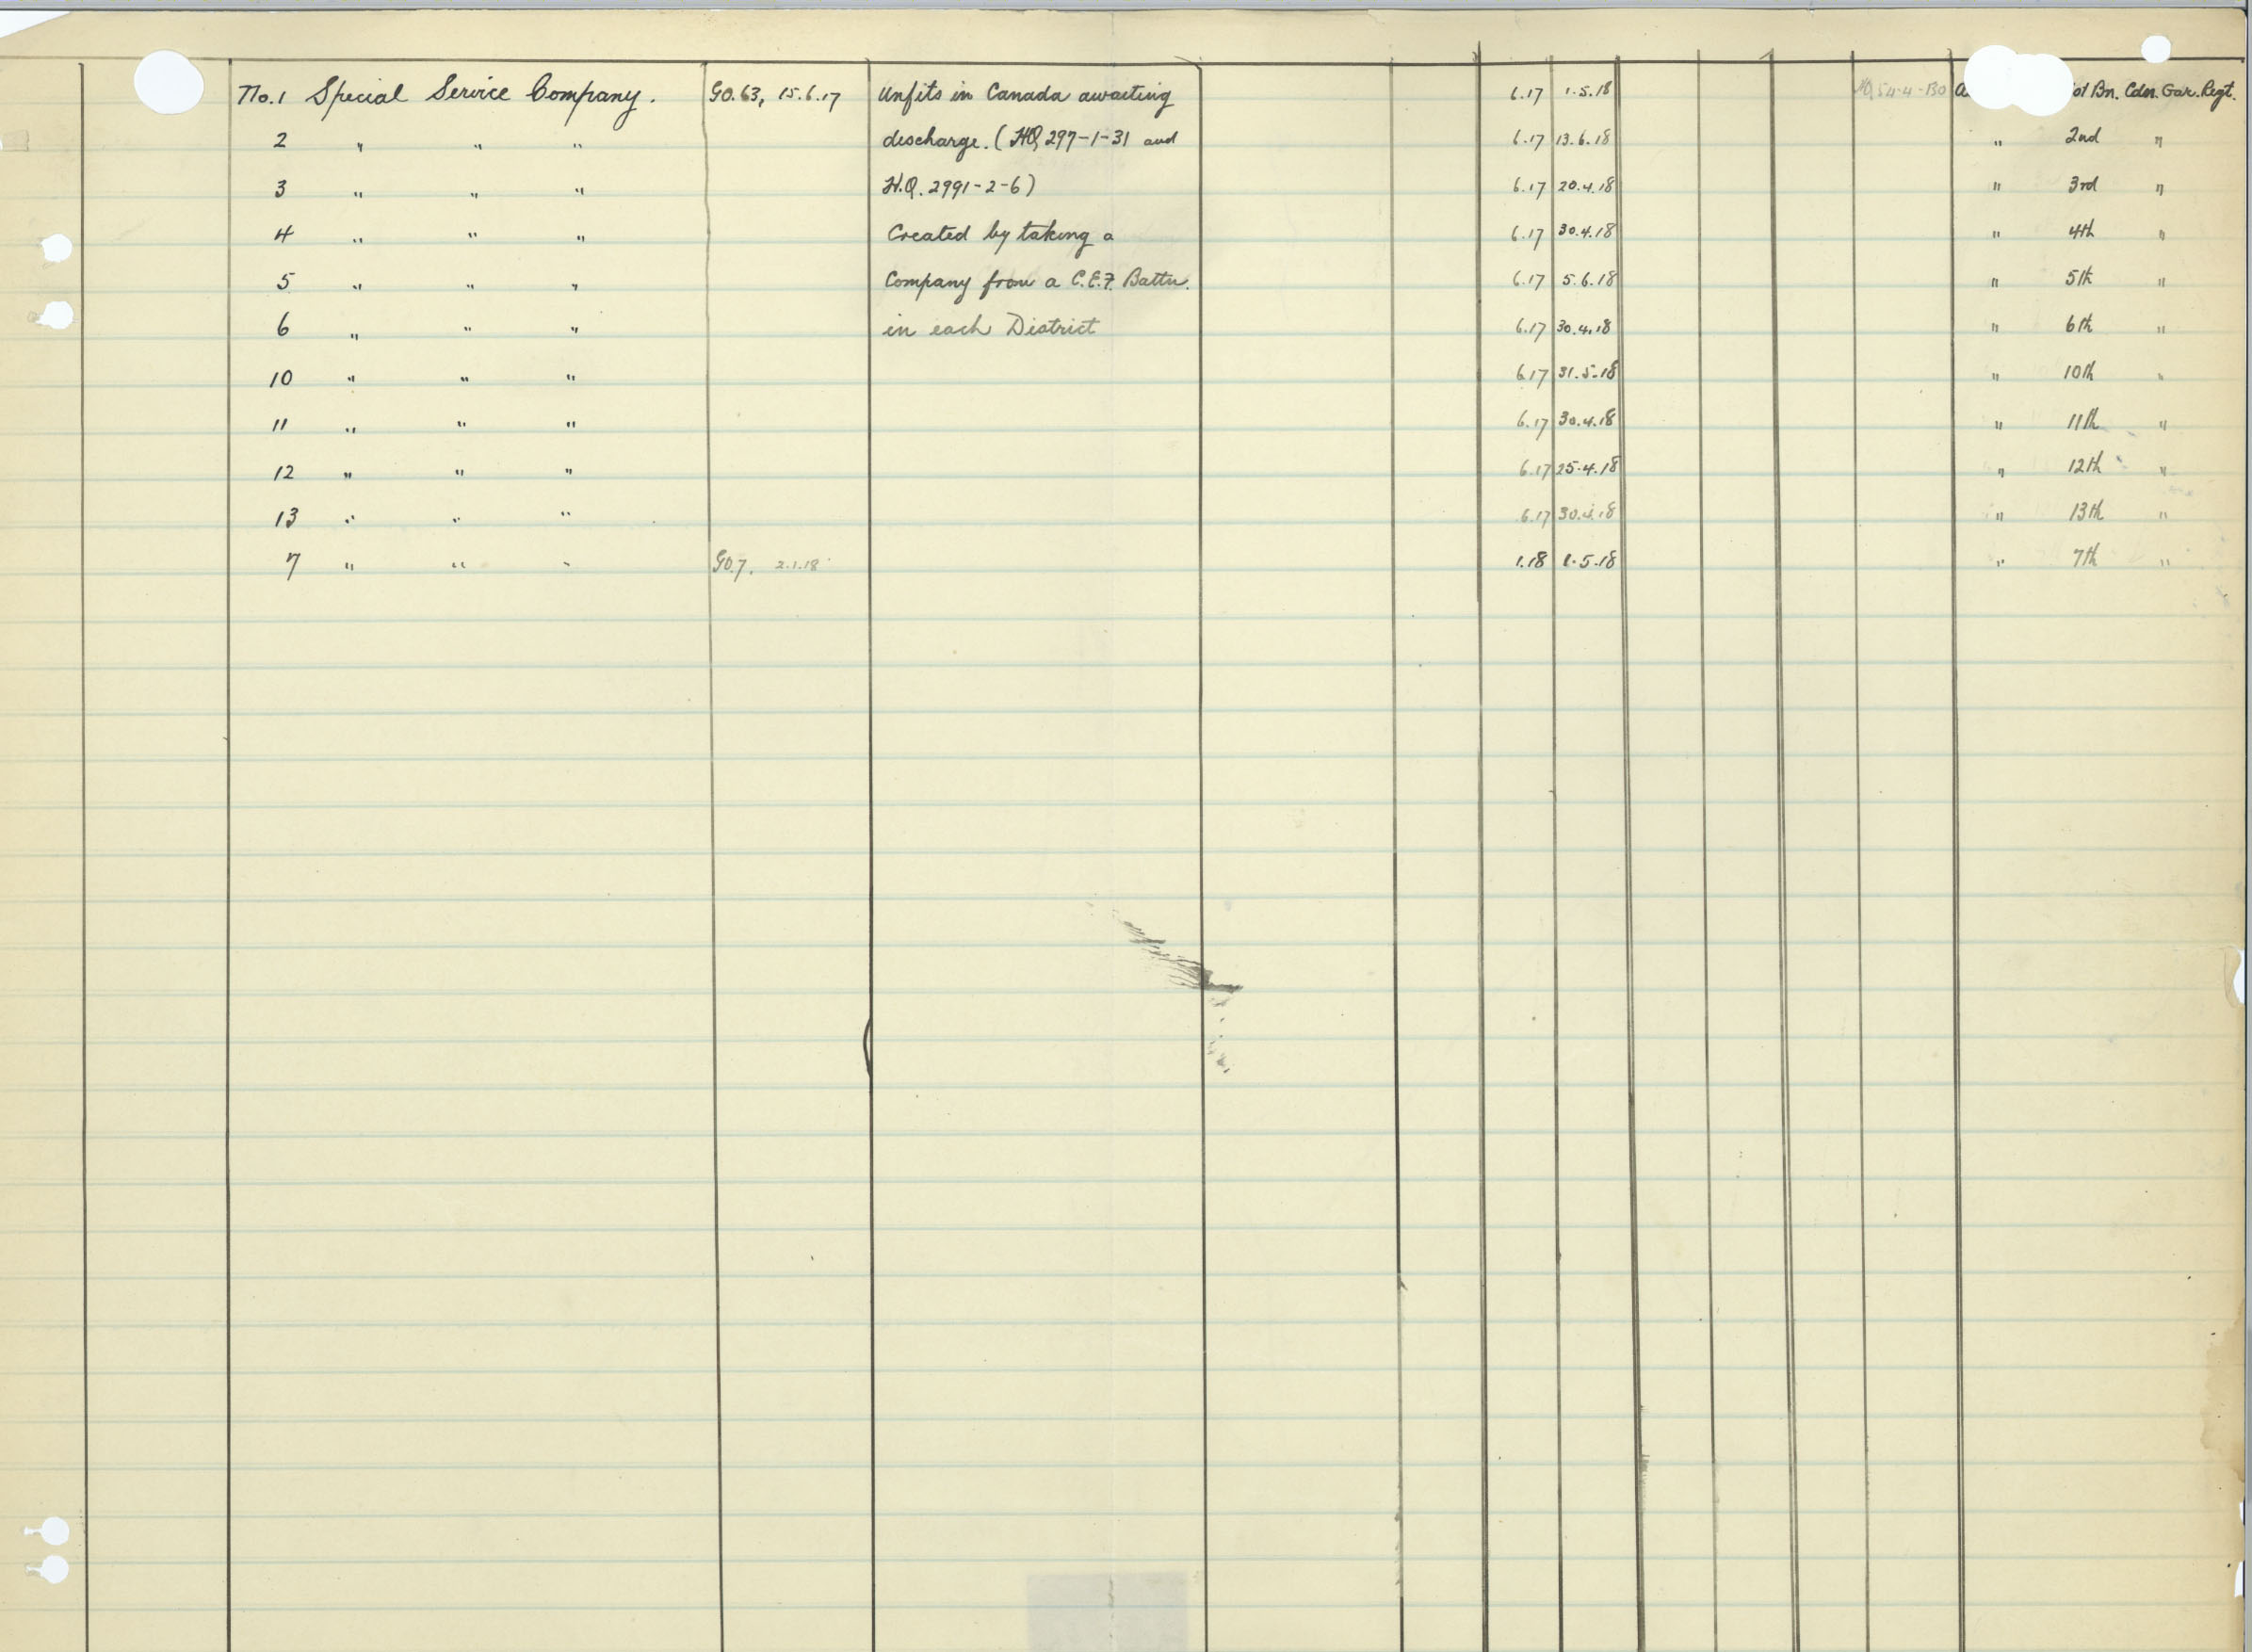 No.1 Special Service Company. GO.63, 15.6.17 Unfits in Canada awaiting 6.17 1.5.18 Bn. Cdn. Gar. Regt.
2 " " " discharge. (HQ 297-1-31 and 6.17 13.6.18 " 2nd "
3 " " " H.Q. 2991-2-6) 6.17 20.4.18 " 3rd "
4 " " " Created by taking a 6.17 30.4.18 " 4th "
5 " " " Company from a C.E.F. Battn. 6.17 5.6.18 " 5th "
6 " " " in each District 6.17 30.4.18 " 6th "
10 " " " 6.17 31.5.18 " 10th "
11 " " " 6.17 30.4.18 " 11th "
12 " " " 6.17 25.4.18 " 12th "
13 " " " 6.17 30.4.18 " 13th "
7 " " " GO.7. 2.1.18 1.18 1.5.18 " 7th "